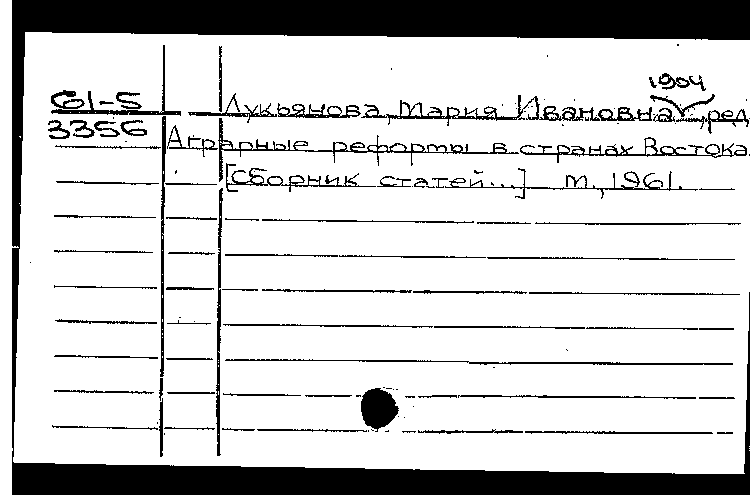 1904
61-5 Лукьянова, Мария Ивановна, ред
3356 Аграрные реформы в странах Востока
[Сборник статей...] М., 1961.